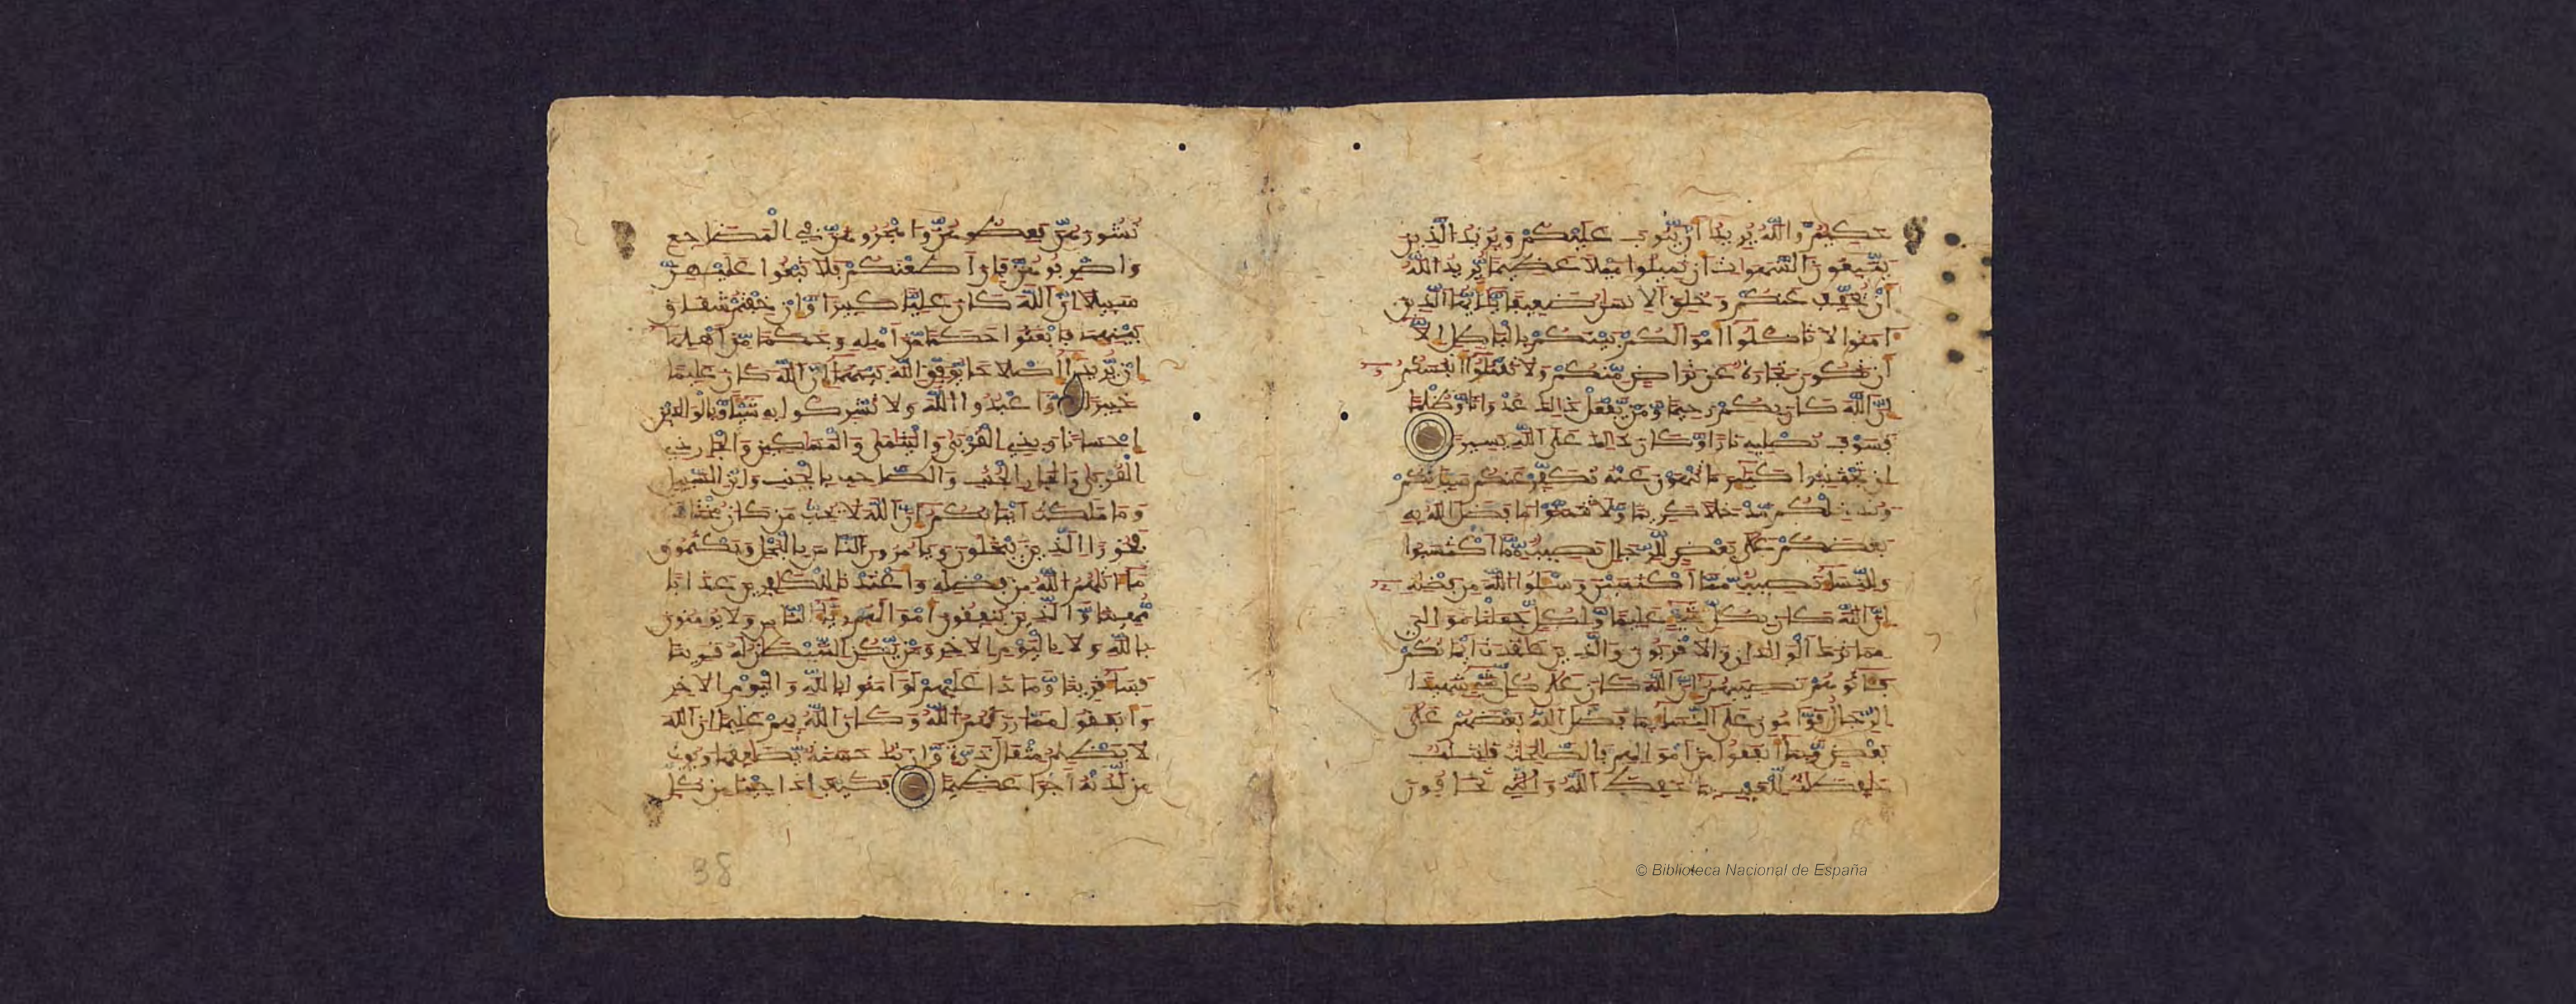 حَكِيمٌ وَاللَّهُ يُرِيدُ أَنْ يَتُوبَ عَلَيْكُمْ وَيُرِيدُ الَّذِينَ
يَتَّبِعُونَ الشَّهَوَاتِ أَن تَمِيلُوا مَيْلًا عَظِيمًا يُرِيدُ اللَّهُ
أَنْ يُخَفِّفَ عَنكُمْ وَخُلِقَ الْإِنسَٰنُ ضَعِيفًا يَٰأَيُّهَا الَّذِينَ
ءَامَنُوا لَا تَاكُلُوا أَمْوَالَكُم بَيْنَكُم بِالْبَٰطِلِ إِلَّا
أَن تَكُونَ تِجَٰرَةٌ عَن تَرَاضٍ مِّنكُمْ وَلَا تَقْتُلُوا أَنفُسَكُمُ
إِنَّ اللَّهَ كَانَ بِكُمْ رَحِيمًا وَمَنْ يَّفْعَلْ ذَٰلِكَ عُدْوَانًا وَظُلْمًا
فَسَوْفَ نُصْلِيهِ نَارًا وَكَانَ ذَٰلِكَ عَلَى اللَّهِ يَسِيرًا
إِن تَجْتَنِبُوا كَبَائِرَ مَا تُنْهَوْنَ عَنْهُ نُكَفِّرْ عَنكُمْ سَيِّـَٔاتِكُمْ
وَنُدْخِلْكُم مَّدْخَلًا كَرِيمًا وَلَا تَتَمَنَّوْا مَا فَضَّلَ اللَّهُ بِهِ
بَعْضَكُمْ عَلَىٰ بَعْضٍ لِّلرِّجَالِ نَصِيبٌ مِّمَّا اكْتَسَبُوا
وَلِلنِّسَاءِ نَصِيبٌ مِّمَّا اكْتَسَبْنَ وَسْـَٔلُوا اللَّهَ مِن فَضْلِهِ
إِنَّ اللَّهَ كَانَ بِكُلِّ شَيْءٍ عَلِيمًا وَلِكُلٍّ جَعَلْنَا مَوَٰلِيَ
مِمَّا تَرَكَ الْوَٰلِدَانِ وَالْأَقْرَبُونَ وَالَّذِينَ عَٰقَدَتْ أَيْمَٰنُكُمْ
فَـَٔاتُوهُمْ نَصِيبَهُمْ إِنَّ اللَّهَ كَانَ عَلَىٰ كُلِّ شَيْءٍ شَهِيدًا
الرِّجَالُ قَوَّامُونَ عَلَى النِّسَاءِ بِمَا فَضَّلَ اللَّهُ بَعْضَهُمْ عَلَىٰ
بَعْضٍ وَبِمَا أَنفَقُوا مِنْ أَمْوَالِهِمْ فَالصَّٰلِحَٰتُ قَٰنِتَٰتٌ
حَٰفِظَٰتٌ لِّلْغَيْبِ بِمَا حَفِظَ اللَّهُ وَالَّٰتِي تَخَافُونَ
نُشُوزَهُنَّ فَعِظُوهُنَّ وَاهْجُرُوهُنَّ فِي الْمَضَاجِعِ
وَاضْرِبُوهُنَّ فَإِنْ أَطَعْنَكُمْ فَلَا تَبْغُوا عَلَيْهِنَّ
سَبِيلًا إِنَّ اللَّهَ كَانَ عَلِيًّا كَبِيرًا وَإِنْ خِفْتُمْ شِقَاقَ
بَيْنِهِمَا فَابْعَثُوا حَكَمًا مِّنْ أَهْلِهِ وَحَكَمًا مِّنْ أَهْلِهَا
إِنْ يُّرِيدَا إِصْلَٰحًا يُوَفِّقِ اللَّهُ بَيْنَهُمَا إِنَّ اللَّهَ كَانَ عَلِيمًا
خَبِيرًا وَاعْبُدُوا اللَّهَ وَلَا تُشْرِكُوا بِهِ شَيْـًٔا وَبِالْوَٰلِدَيْنِ
إِحْسَٰنًا وَبِذِي الْقُرْبَىٰ وَالْيَتَٰمَىٰ وَالْمَسَٰكِينِ وَالْجَارِ ذِي
الْقُرْبَىٰ وَالْجَارِ الْجُنُبِ وَالصَّاحِبِ بِالْجَنبِ وَابْنِ السَّبِيلِ
وَمَا مَلَكَتْ أَيْمَٰنُكُمْ إِنَّ اللَّهَ لَا يُحِبُّ مَن كَانَ مُخْتَالًا
فَخُورًا الَّذِينَ يَبْخَلُونَ وَيَامُرُونَ النَّاسَ بِالْبُخْلِ وَيَكْتُمُونَ
مَا ءَاتَىٰهُمُ اللَّهُ مِن فَضْلِهِ وَأَعْتَدْنَا لِلْكَٰفِرِينَ عَذَابًا
مُّهِينًا وَالَّذِينَ يُنفِقُونَ أَمْوَٰلَهُمْ رِئَاءَ النَّاسِ وَلَا يُومِنُونَ
بِاللَّهِ وَلَا بِالْيَوْمِ الْأَخِرِ وَمَنْ يَّكُنِ الشَّيْطَٰنُ لَهُ قَرِينًا
فَسَاءَ قَرِينًا وَمَاذَا عَلَيْهِمْ لَوْ ءَامَنُوا بِاللَّهِ وَالْيَوْمِ الْأَخِرِ
وَأَنفَقُوا مِمَّا رَزَقَهُمُ اللَّهُ وَكَانَ اللَّهُ بِهِمْ عَلِيمًا إِنَّ اللَّهَ
لَا يَظْلِمُ مِثْقَالَ ذَرَّةٍ وَإِن تَكُ حَسَنَةٌ يُضَٰعِفْهَا وَيُوتِ
مِن لَّدُنْهُ أَجْرًا عَظِيمًا فَكَيْفَ إِذَا جِئْنَا مِن كُلِّ
38
© Biblioteca Nacional de España